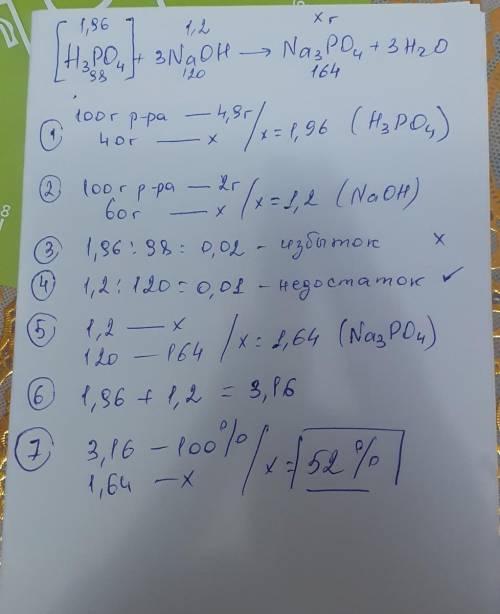 1,96 1,2 x г
[H₃PO₄] + 3NaOH → Na₃PO₄ + 3H₂O
98 120 164
① 100г р-ра — 4,9г
40г — x / x = 1,96 (H₃PO₄)
② 100г р-ра — 2г
60г — x / x = 1,2 (NaOH)
③ 1,96 : 98 = 0,02 - избыток x
④ 1,2 : 120 = 0,01 - недостаток ✓
⑤ 1,2 — x
120 — 164 / x = 1,64 (Na₃PO₄)
⑥ 1,96 + 1,2 = 3,16
⑦ 3,16 — 100%
1,64 — x / x = 52%